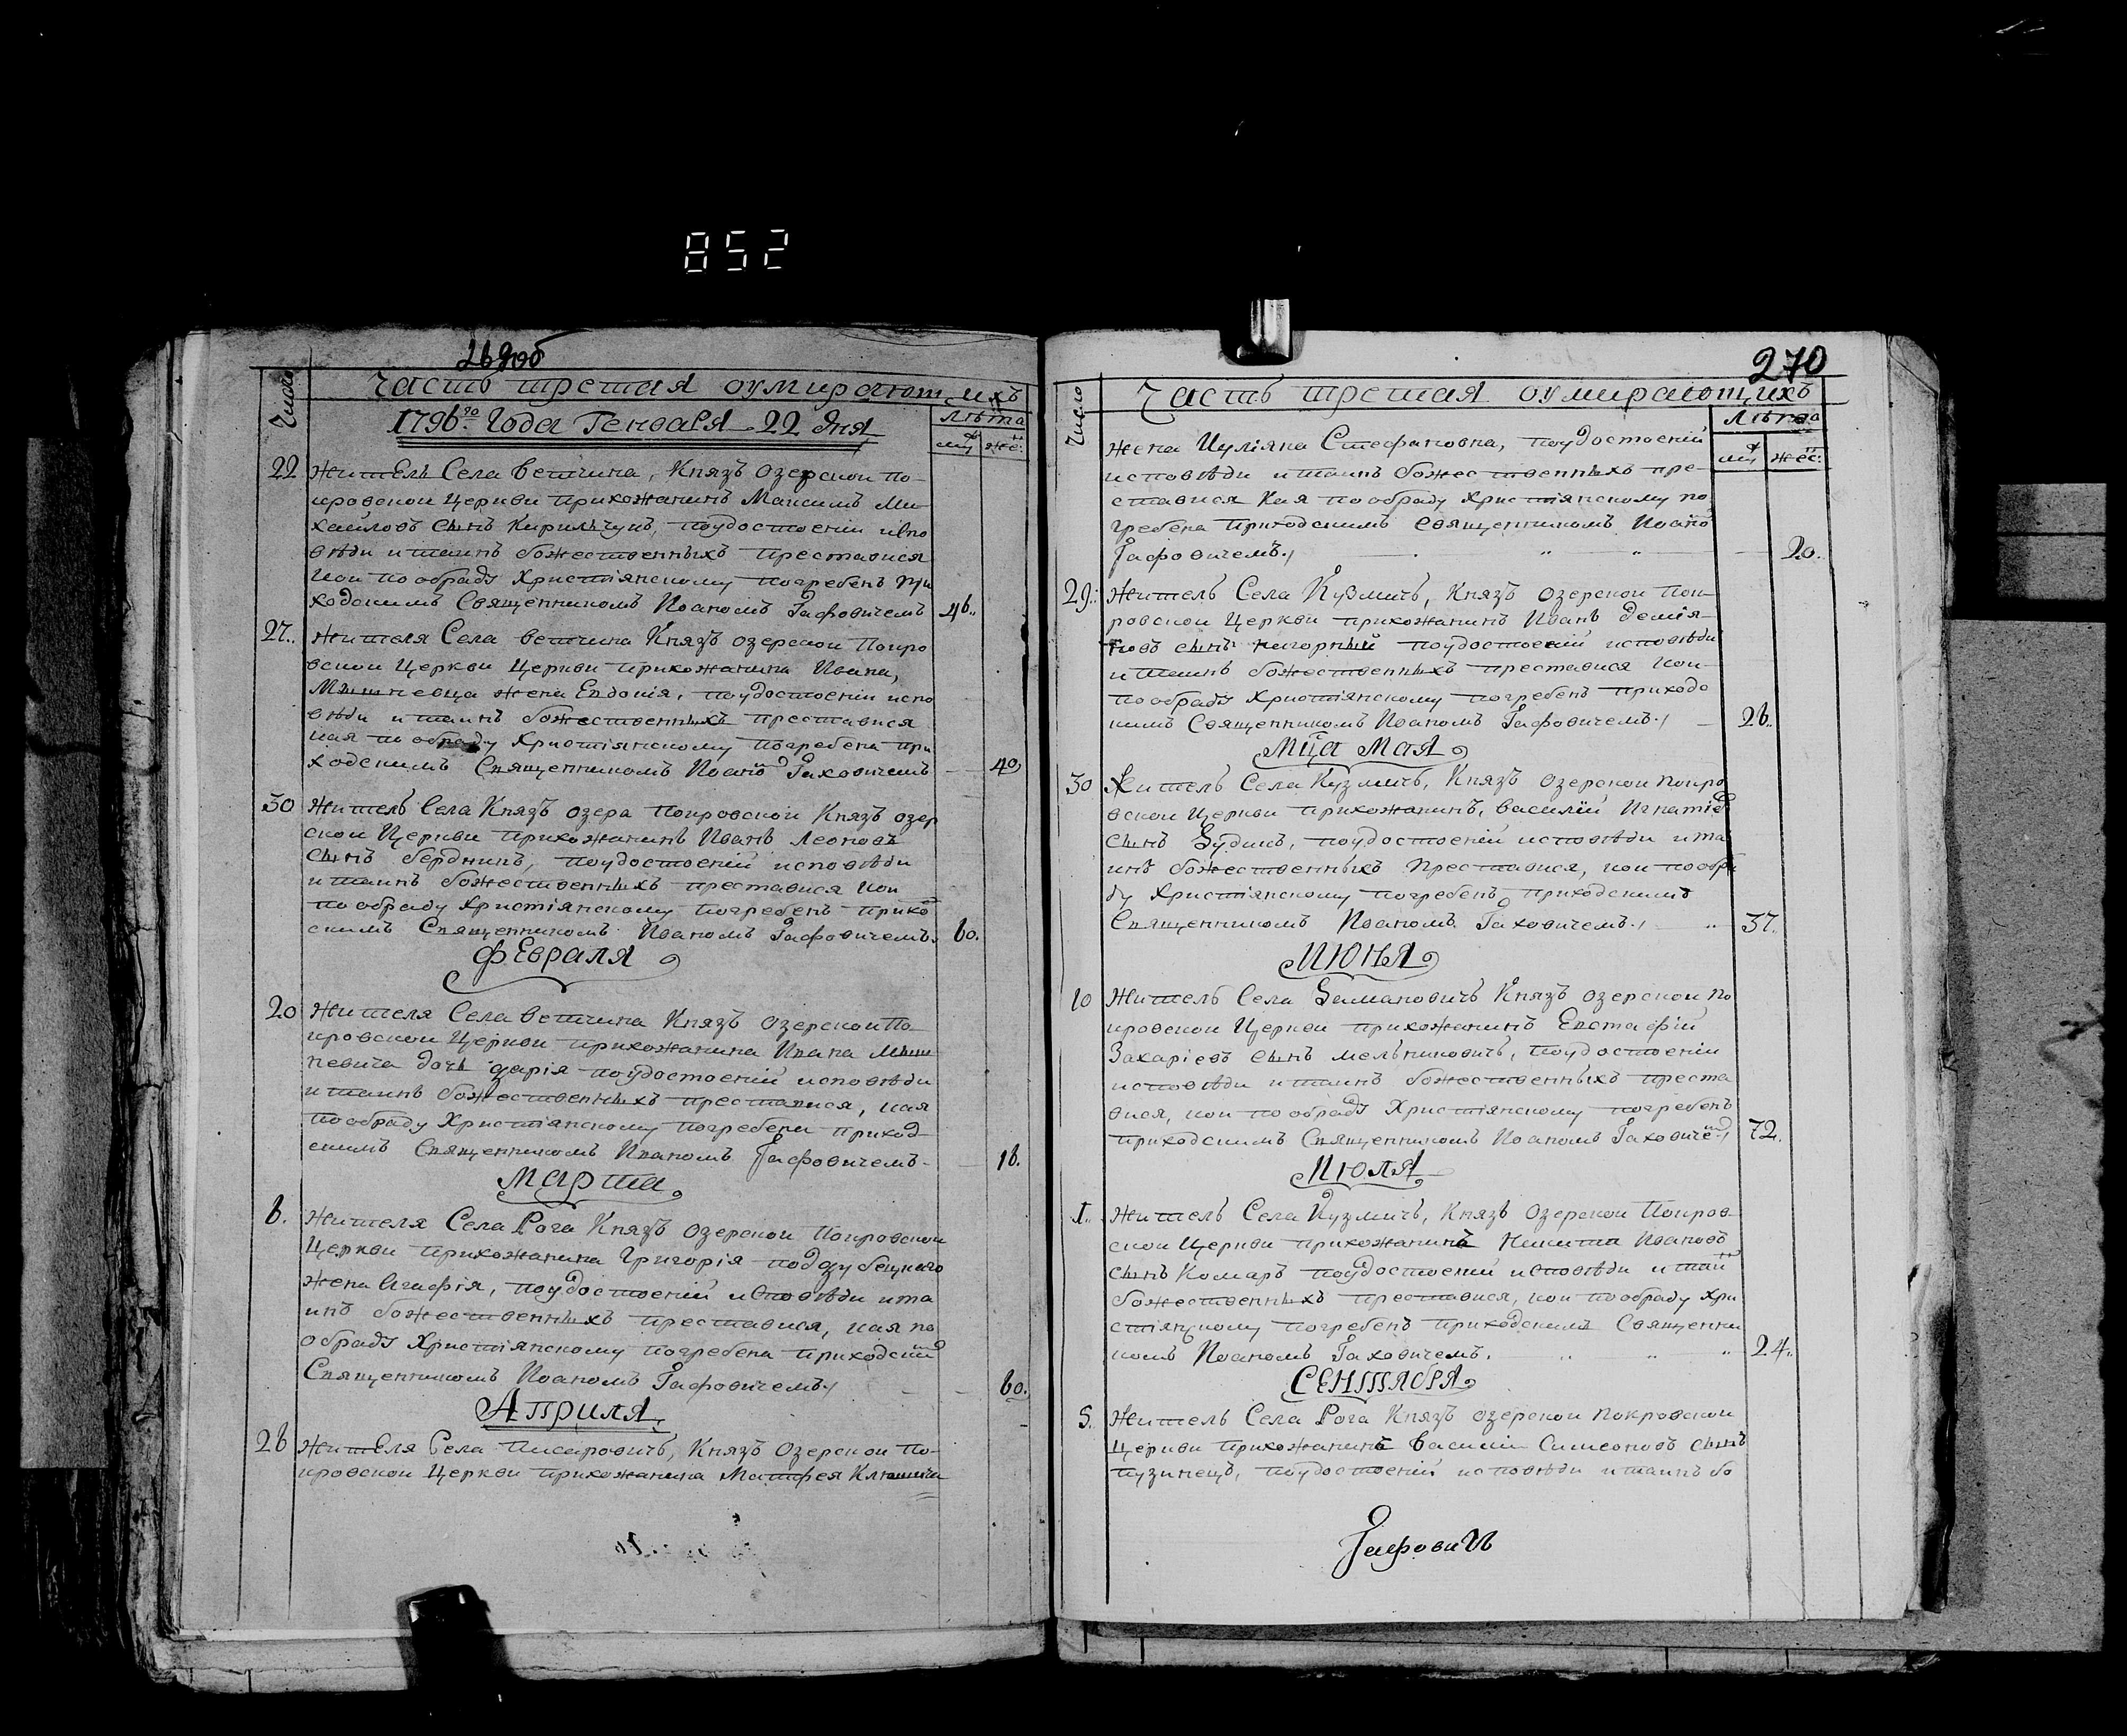 852
269 об
Число
Часть третая оумирающихъ
Лѣта
1796го Года Генваря 22 дня
муж
жен:
22 Житель Села Ветчина, Князъ озерскои По-
кровскои Церкви прихожанинъ Максимъ Ми-
хайловъ сынъ Кирильчукъ, поудостоенїи испо
вѣди итаинъ божественныхъ преставися
кои пообраду Християнскому погребенъ при
ходскимъ Священникомъ Иоаномъ Гафовичемъ 46..
27.. Жителя Села Ветчина Князъ озерскои Покро
вскои Церкви Церкви прихожанина Ивана,
Мышневца жена Евдокія, поудостоенїи испо
вѣди итаинъ божественныхъ преставися
кая пообраду Християнскому погребена при
ходскимъ Священникомъ Иоано Гаховичемъ 40
30 Житель Села Князъ озера Покровскои Князъ озер
скои Церкви прихожанинъ Иванъ Леоновъ
сынъ бердникъ, поудостоенїй исповѣди
итаинъ божественныхъ преставися кои
пообраду Християнскому погребенъ прихо
скимъ Священникомъ Иваномъ Гафовичемъ. 60.
Февраля
20 Жителя Села Ветчина Князъ озерскои По-
кровскои Церкви прихожанина Ивана Мыш
невича дочь Дарія поудостоенїй исповѣди
итаинъ божественныхъ преставися, кая
пообраду Християнскому погребена приход-
скимъ Священникомъ Иваномъ Гафовичемъ. 16.
Марта
6. Жителя Села Рога Князъ озерскои Покровскои
Церкви прихожанина Григорія поддубецкаго
жена Агафія, поудостоенїй исповѣди ита
инъ божественныхъ преставися, кая по
обраду Християнскому погребена приходским
Священникомъ Иоаномъ Гафовичемъ 60.
Априля
26 Жителя Села Писаровичъ, Князъ Озерскои По-
кровскои Церкви прихожанина Матфея
270
Число
Часть третая оумирающихъ
Лѣта
муж
жен:
жена Иуліяна Стефановна, поудостоенїй
исповѣди итаинъ божественныхъ пре-
ставися кая пообраду Християнскому по
гребена приходскимъ Священникомъ Иоано
Гафовичемъ. 20.
29.: Житель Села Кузмичъ, Князъ озерскои Пок-
ровскои Церкви прихожанинъ Иванъ Демія-
новъ сынъ нагорный поудостоенїй исповѣди
итаинъ божественныхъ преставися кои-
пообраду Християнскому погребенъ приходс
кимъ Священникомъ Иоаномъ Гафовичемъ. 26.
Мца Мая
30 Житель Села Кузмичъ, Князъ озерскои Покро
вскои Церкви прихожанинъ, Василій Игнатіев
сынъ Зудинъ, поудостоенїй исповѣди ита
инъ божественныхъ преставися, кои пообра
ду Християнскому погребенъ приходскимъ
Священникомъ Иваномъ Гаховичемъ. 37.
Июня
10 Житель Села Замановичъ Князъ озерскои По
кровскои Церкви прихожанинъ Евстафій
Захаріевъ сынъ мельниковичъ, поудостоенїи
исповѣди итаинъ божественныхъ преста
вися, кои пообраду Християнскому погребенъ
приходскимъ Священникомъ Иоаномъ Гаховиче 72.
Июля
1. Житель Села Кузмичъ, Князъ озерскои Покров-
скои Церкви прихожанинъ Никита Ивановъ
сынъ Комаръ поудостоенїй исповѣди итаин
божественныхъ преставися, кои пообраду Хри
стіянскому погребенъ приходскимъ Священни
комъ Иоаномъ Гаховичемъ. 24.
Сентября
5. Житель Села Рога Князъ озерскои Покровскои
Церкви прихожанинъ Василїи Симеоновъ сынъ
пузинецъ, поудостоенїй исповѣди итаинъ бо
Гафовичъ